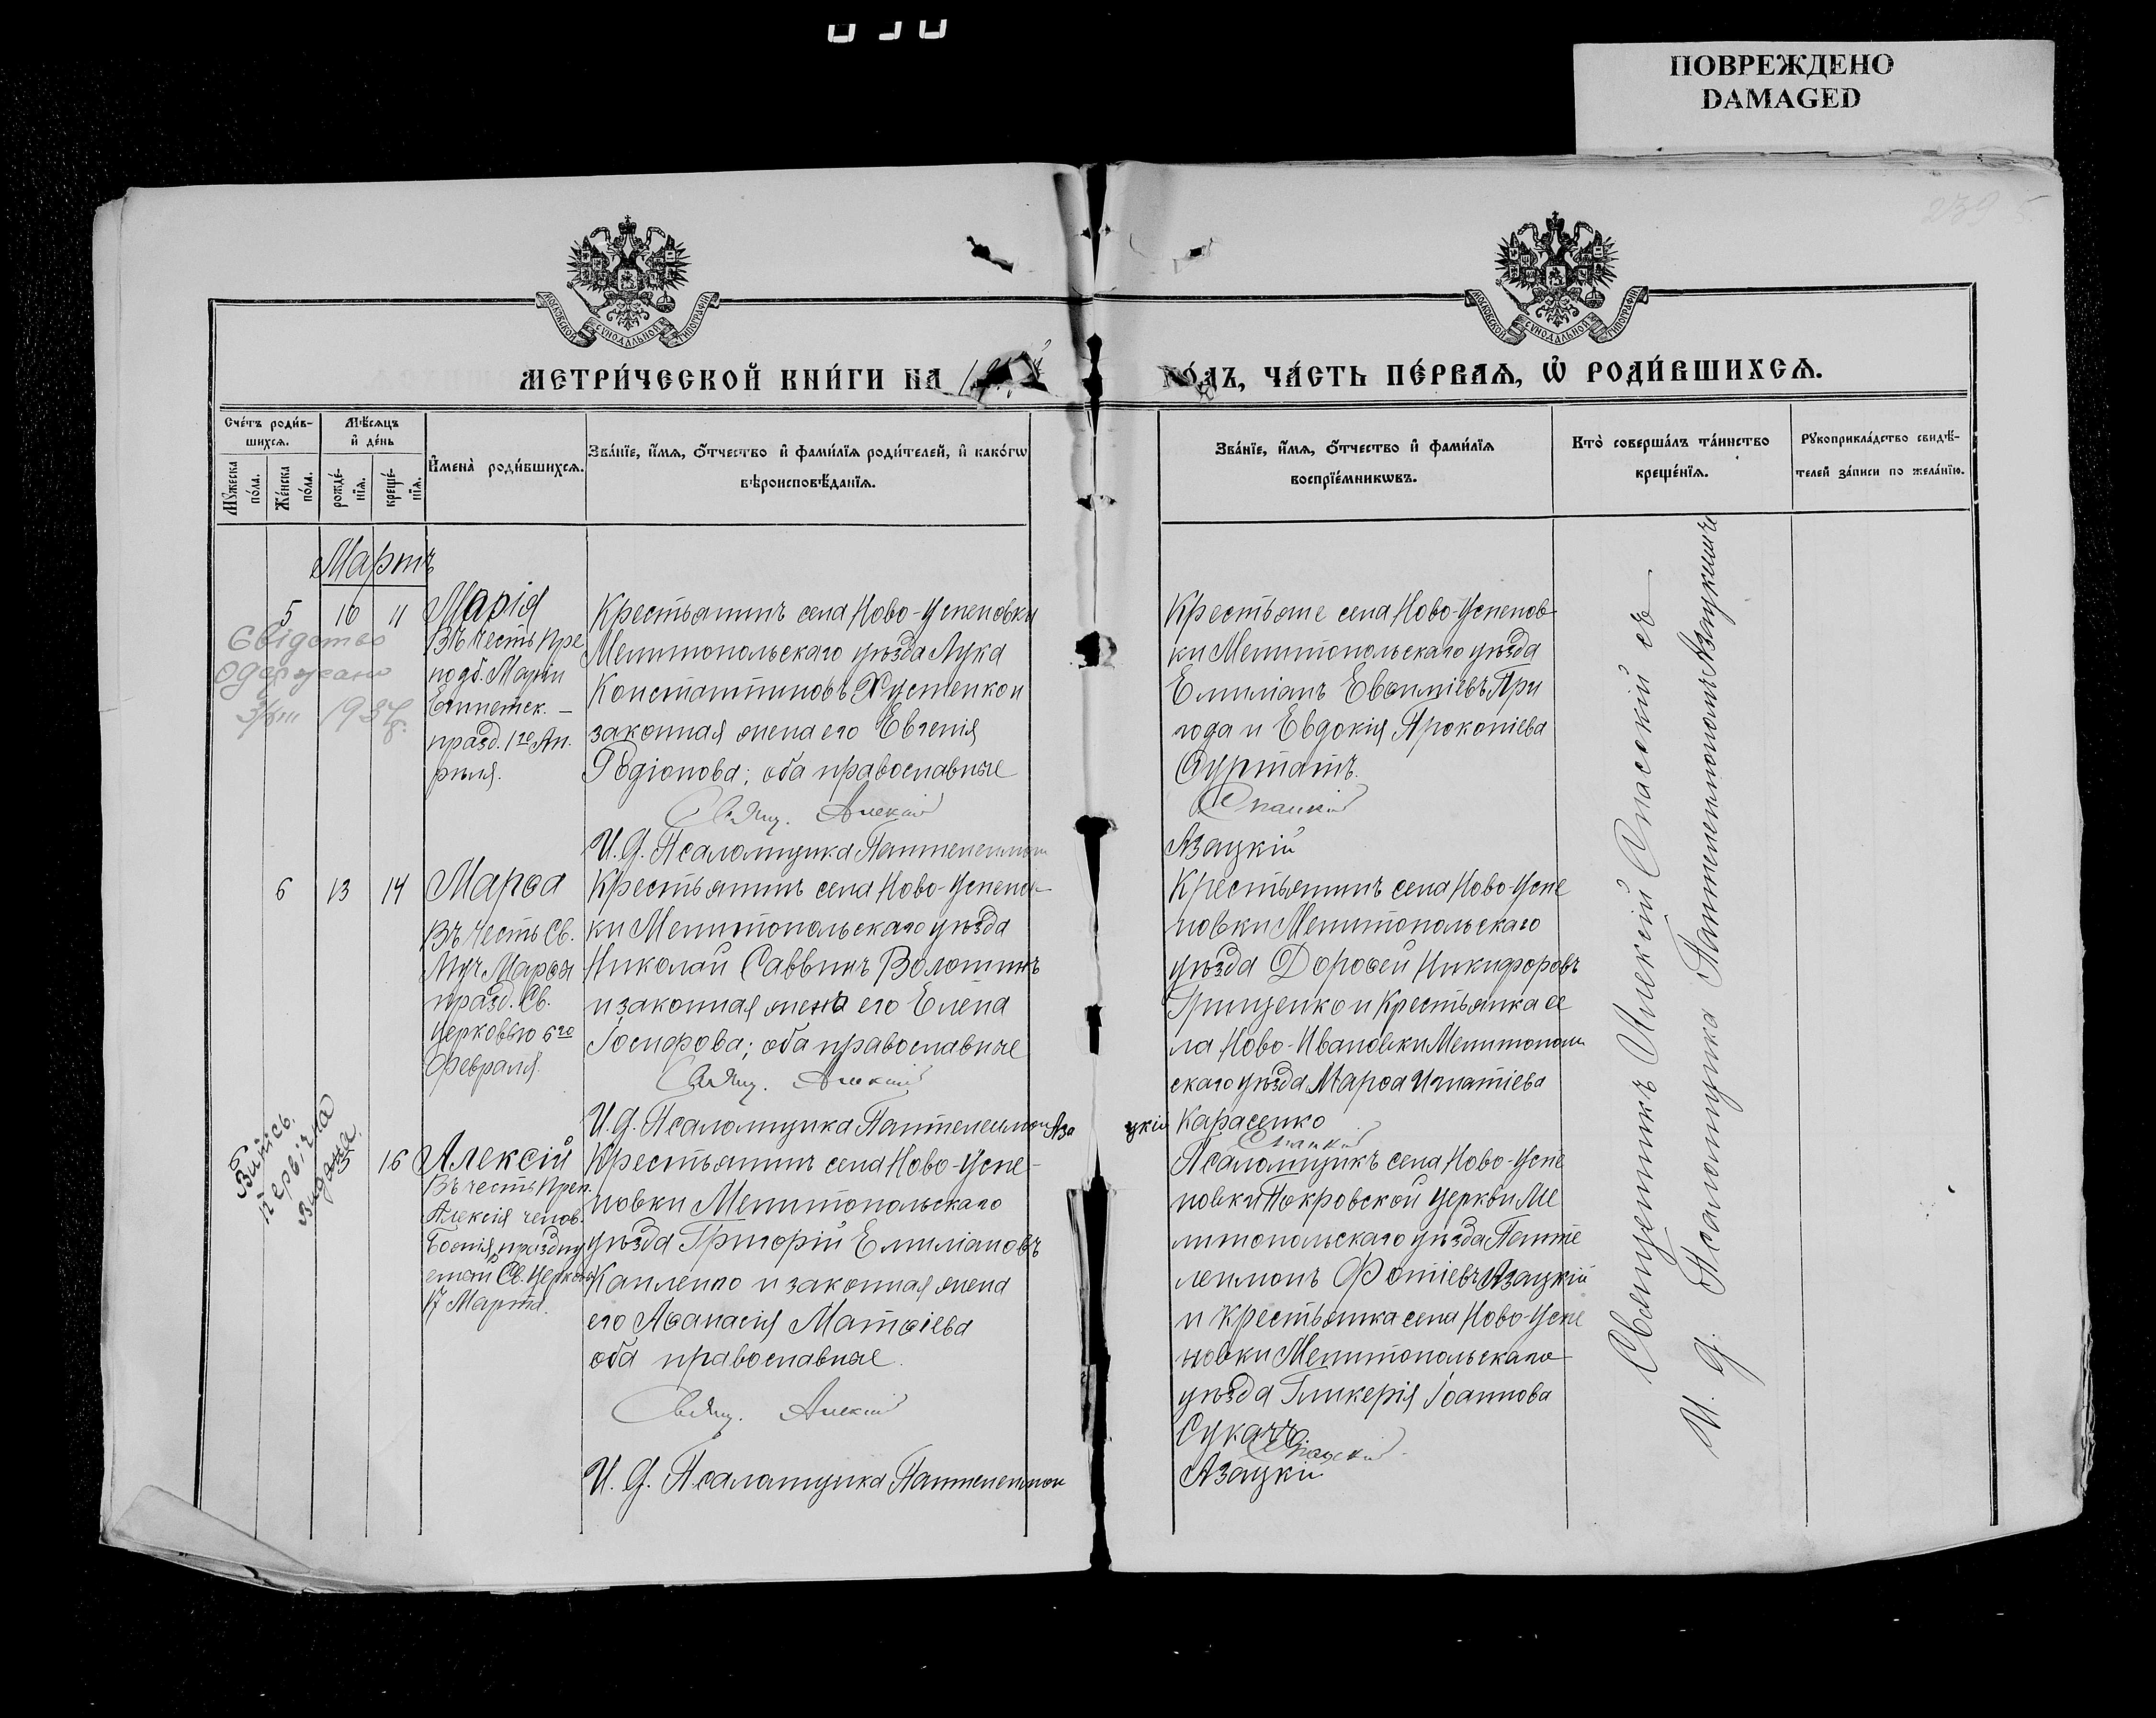 ПОВРЕЖДЕНО
DAMAGED
МОСКОВСКОЙ СѴНОДАЛЬНОЙ ТИПОГРАФІИ
МОСКОВСКОЙ СѴНОДАЛЬНОЙ ТИПОГРАФІИ
МЕТРИ́ЧЕСКОЙ КНИ́ГИ НА
ГО́ДЪ, ЧА́СТЬ ПЕ́РВАѦ, Ѡ҆ РОДИ́ВШИХСѦ.
Сче́тъ роди́в-
шихсѧ.
Мѣ́сѧцъ
и҆ де́нь
Мꙋ́жеска
по́ла.
Же́нска
по́ла.
рожде́-
нїѧ.
креще́-
нїѧ.
И҆мена̀ роди́вшихсѧ.
Зва́нїе, и҆́мѧ, ѻ҆́тчество и҆ фами́лїѧ роди́телей, и҆ како́гѡ
вѣроисповѣ́данїѧ.
Зва́нїе, и҆́мѧ, ѻ҆́тчество и҆ фами́лїѧ
воспрїе́мникѡвъ.
Кто̀ соверша́лъ та́инство
креще́нїѧ.
Рꙋкоприкла́дство свидѣ́-
телей за́писи по жела́нїю.
Мартъ
5 10 11 Марія
Въ честь Пре
подб. Маріи
Египетск. –
празд. 1го Ап-
рѣля.
Свідоцтво
одержано
1937р.
Крестьянинъ села Ново-Успеновки
Мелитопольскаго уѣзда Лука
Константиновъ Хустенко и
законная жена его Евгенія
Родіонова; оба православные
Свящ. Алексій
И. д. Псаломщика Пантелеимон
Крестьяне села Ново-Успенов-
ки Мелитопольскаго уѣзда
Емиліанъ Евѳиміевъ При
года и Евдокія Прокопіева
Спасскій
Азацкій
6 13 14 Марѳа
Въ честь Св.
Муч Марѳы
празд. Св.
Церковью 6го
Февраля.
Крестьянинъ села Ново-Успенов-
ки Мелитопольскаго уѣзда
Николай Саввинъ Волошинъ
и законная жена его Елена
Іосифова; оба православные
Свящ. Алексій
И. д. Псаломщика Пантелеимон Аза
цкій
Крестьянинъ села Ново-Успе
новки Мелитопольскаго
уѣзда Дороѳей Никифоровъ
Грищенко и Крестьянка се
ла Ново-Ивановки Мелитополь
скаго уѣзда Марѳа Игнатіева
Карасенко
Спасскій
Випись
первічна
Видана
15 16 Алексій
Въ честь Преп.
Алексія челов.
Божія, праздну
емаго Св. Церковью
17 Марта.
Крестьянинъ села Ново-Успе-
новки Мелитопольскаго
уѣзда Григорій Емиліановъ
Капленко и законная жена
его Аѳанасія Матѳіева
оба православные.
Свящ. Алексій
И. д. Псаломщика Пантелеимон
Псаломщикъ села Ново-Успе
новки Покровской Церкви Ме
литопольскаго уѣзда Панте
леимонъ Фотіевъ Азацкій
и Крестьянка села Ново-Успе
новки Мелитопольскаго
уѣзда Гликерія Іоаннова
Сукачъ
Спасскій
Азацкій
Священникъ Алексій Спасскій съ
И. д. Псаломщика Пантелеимономъ Азацкимъ